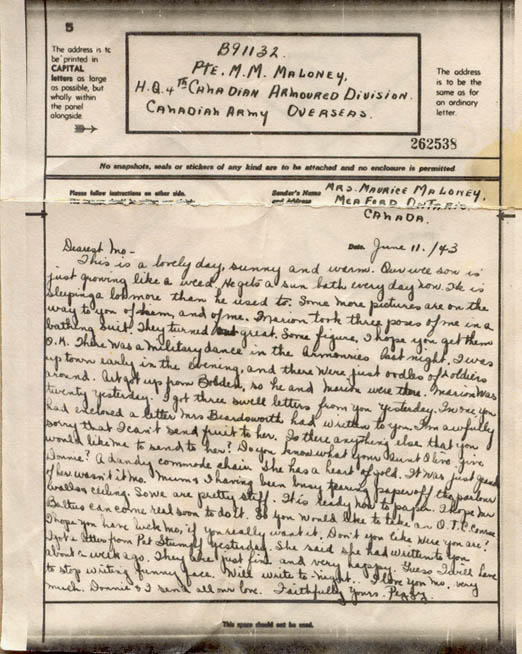 5
The address is to
be printed in
CAPITAL
letters as large
as possible, but
wholly within
the panel
alongside
B91132.
PTE. M.M. MALONEY,
H.Q. 4TH CANADIAN ARMOURED DIVISION.
CANADIAN ARMY OVERSEAS.
The address
is to be the
same as for
an ordinary
letter.
262538
No snapshots, seals or stickers of any kind are to be attached and no enclosure is permitted
Please follow instructions on other side.
Sender's Name
and Address
MRS. MAURICE MALONEY,
MEAFORD ONTARIO
CANADA.
Date. June 11. /43
Dearest Mo -
This is a lovely day, sunny and warm. Our wee son is
just growing like a weed. He gets a sun bath every day now. He is
sleeping a lot more than he used to. Some more pictures are on the
way to you of him, and of me. Marion took three poses of me in a
bathing suit. They turned out great. Some figure. I hope you get them
O.K. There was a military dance in the Armouries last night. I was
up town early in the evening, and there were just oodles of soldiers
around. Art got up from Borden, so he and Marion were there. Marion was
twenty yesterday. I got three swell letters from you yesterday. In one you
had enclosed a letter Mrs Beardsworth had written to you. I'm awfully
sorry that I can't send fruit to her. Is there anything else that you
would like me to send to her? Do you know what your Aunt give
Donnie? A dandy commode chair. She has a heart of gold. It was just grand
of her wasn't it Mo. Mum & I having been busy tearing paper off the parlour
walls & ceiling. So we are pretty stiff. It is ready now to paper. I hope Mr
can come real soon to do it. So you would like to take an O.T.C. Course
I hope you have luck Mo, if you really want it. Don't you like where you are?
I got a letter from Pat yesterday. She said she had written to you
about a week ago. They are just fine and very happy. Guess I will have
to stop writing funny face. Will write to-night. I love you Mo, very
much. Donnie & I send all our love. Faithfully Yours. Peggy.
This space should not be used.